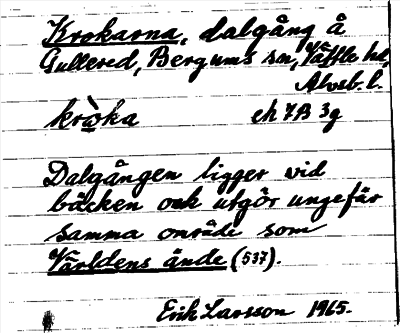 Krokarna, dalgång å
Gullered, Bergums sn, Vättle hd,
Älvsb. l.
krò̤ka ek 7B 3g
Dalgången ligger vid
bäcken och utgör ungefär
samma område som
Världens ände (537).
Erik Larsson 1965.